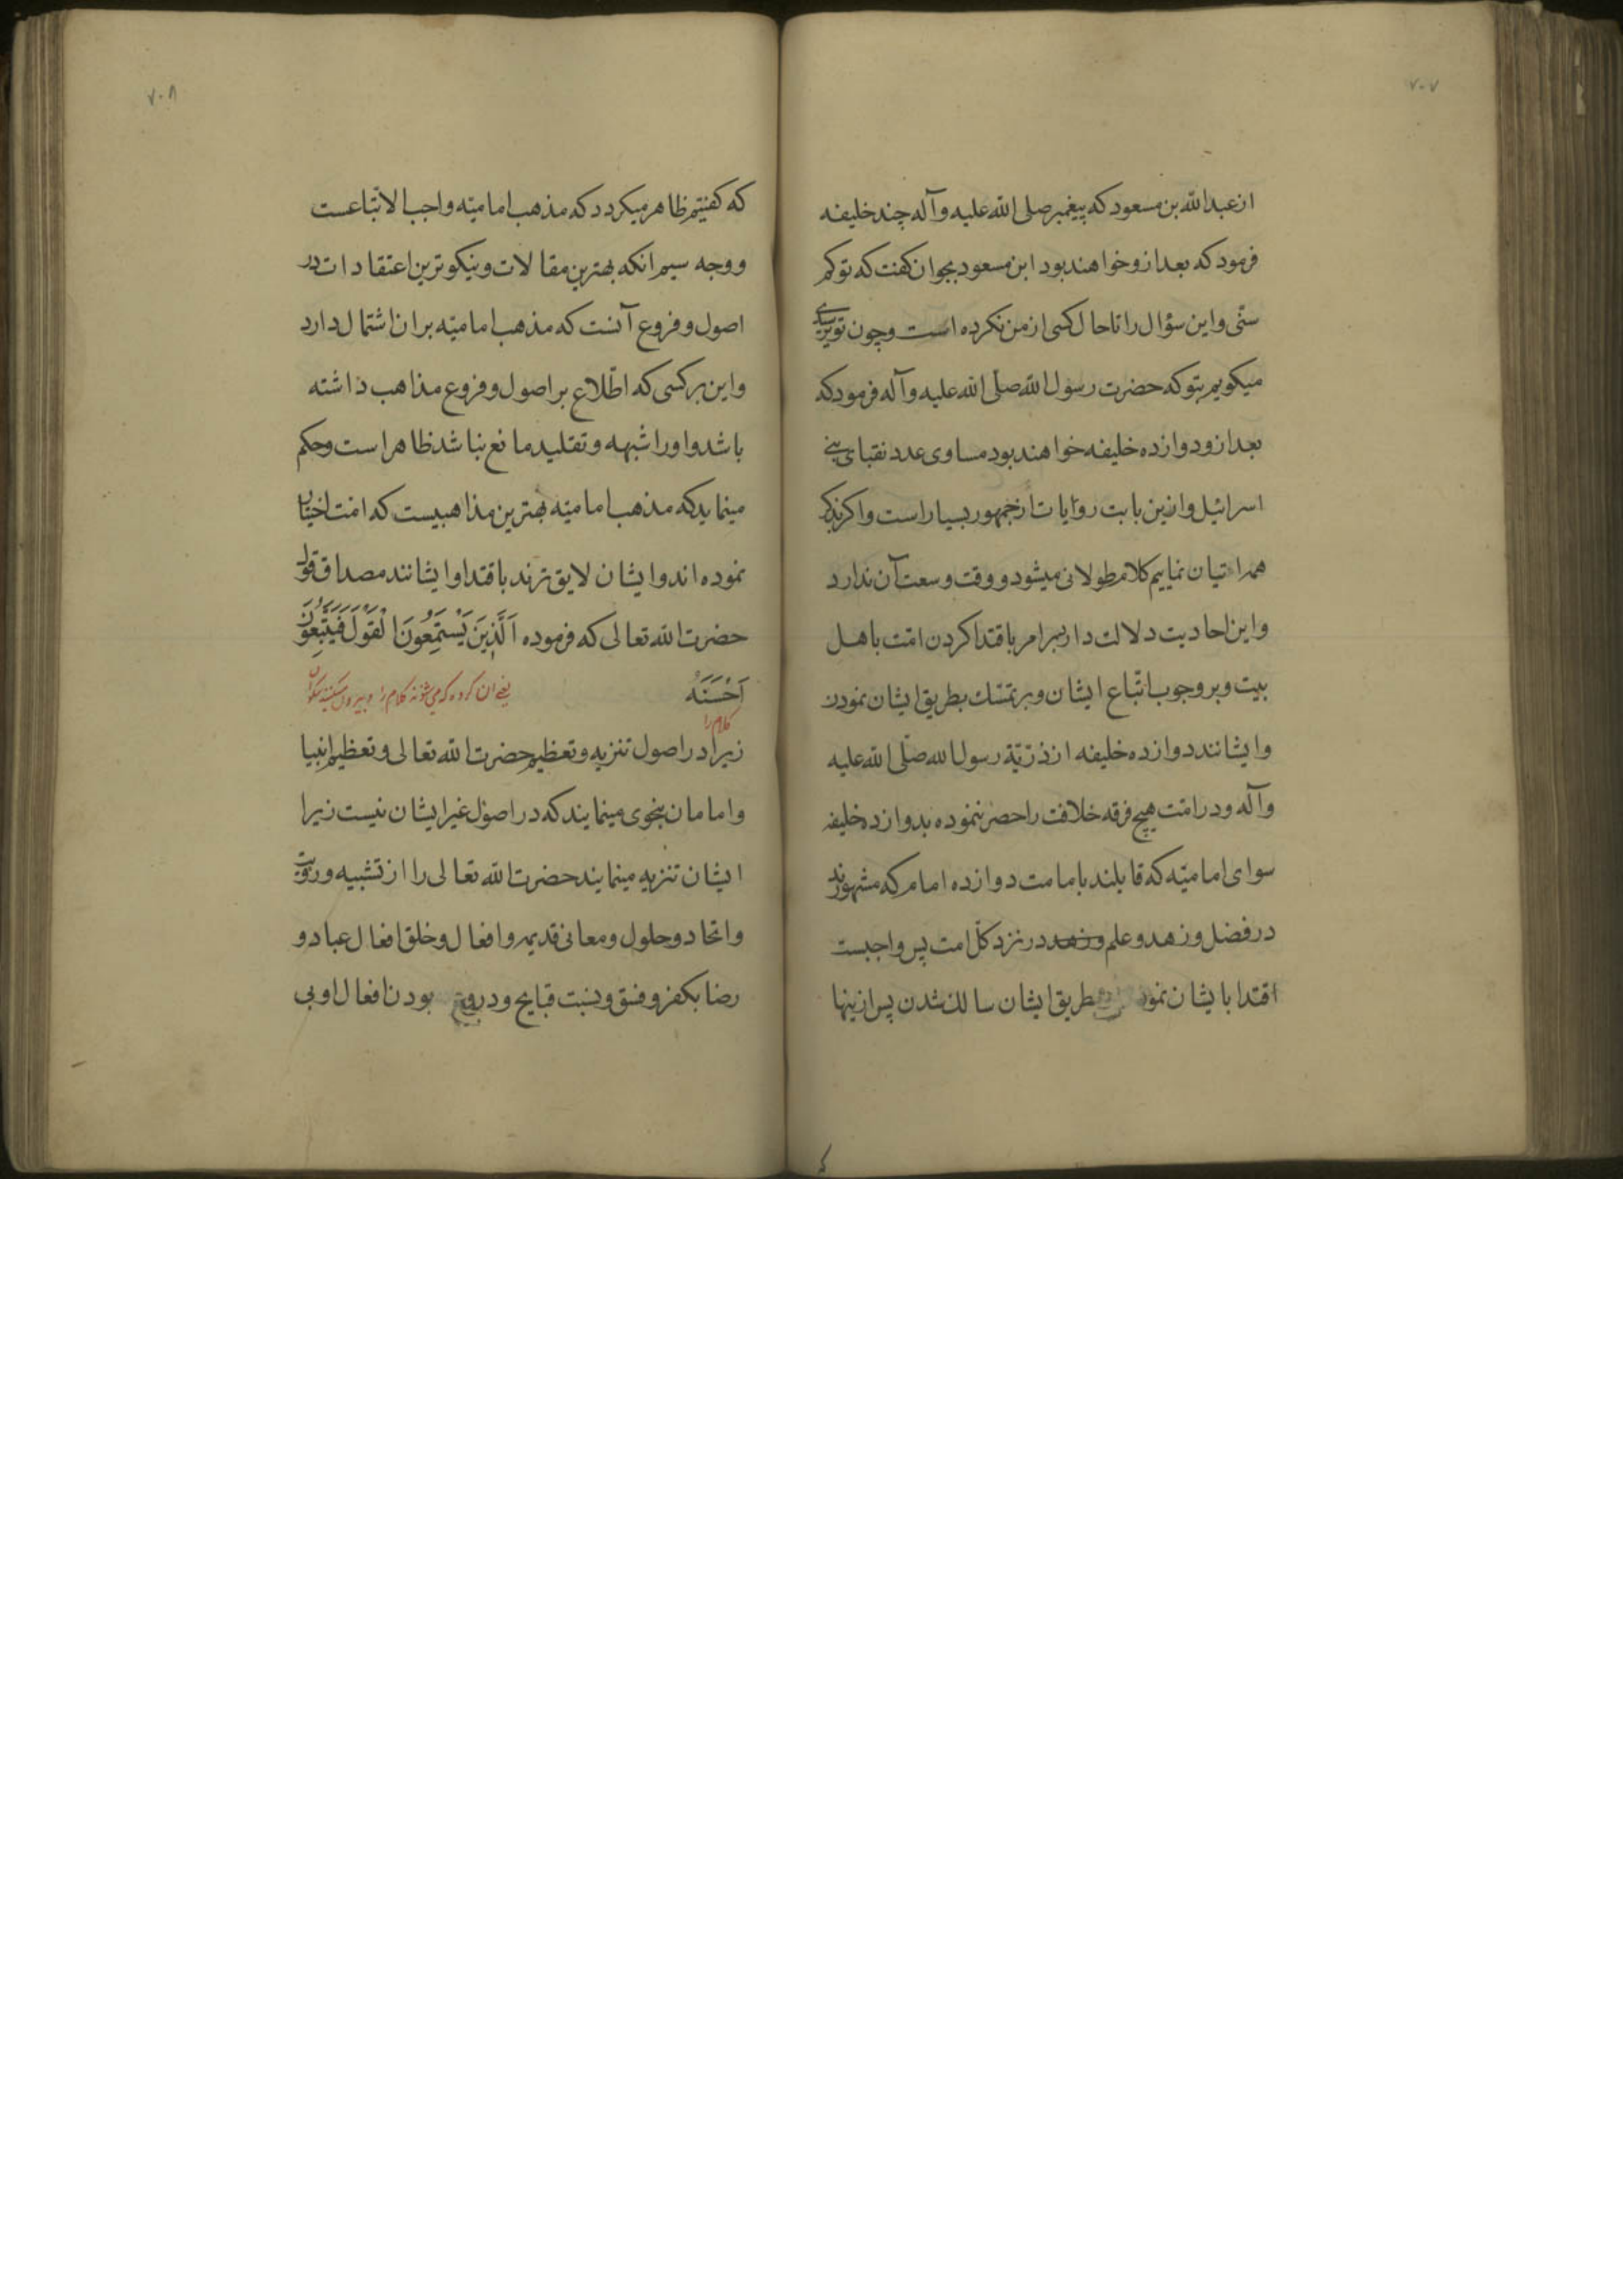 ٧٠٧
از عبدالله بن مسعود که پیغمبر صلی الله علیه وآله چند خلیفه
فرمود که بعد ازو خواهند بود ابن مسعود بجوان کفت که تو کم
سنّی واین سؤال را تا حال کسی از من نکرده است وچون تو پرسیدی
میکویم بتو که حضرت رسول الله صلّی الله علیه وآله فرمود که
بعد ازو دوازده خلیفه خواهند بود مساوی عدد نقبای بنی
اسرائیل وازین بابت روایات از جمهور بسیار است واکر بذکر
همه اتیان نماییم کلام طولانی میشود و وقت وسعت آن ندارد
واین احادیث دلالت دارد بر امر باقتدا کردن امّت باهل
بیت وبر وجوب اتّباع ایشان وبر تمسّک بطریق ایشان نمودن
وایشانند دوازده خلیفه از ذرّیّة رسول الله صلّی الله علیه
وآله ودر امّت هیچ فرقه خلافت را حصر ننموده بدوازده خلیفه
سوای امامیّه که قایلند بامامت دوازده امام که مشهورند
در فضل وزهد وعلم وزهد در نزد کلّ امت پس واجبست
اقتدا بایشان نمودن بطریق ایشان سالک شدن پس ازینها
که
٧٠٨
که کفتیم ظاهر میکردد که مذهب امامیّه واجب الاتّباعست
ووجه سیم انکه بهترین مقالات ونیکوترین اعتقادات در
اصول وفروع آنست که مذهب امامیّه بران اشتمال دارد
واین بر کسی که اطّلاع بر اصول وفروع مذاهب داشته
باشد واورا شبهه وتقلید مانع نباشد ظاهر است وحکم
مینماید که مذهب امامیّه بهترین مذاهبیست که امّت اختیار
نموده اند وایشان لایق ترند باقتدا وایشانند مصداق قول
حضرت الله تعالی که فرموده اَلَّذِینَ یَسْتَمِعُونَ الْقَوْلَ فَیَتَّبِعُونَ
اَحْسَنَهُ یعنی ان کروه که می شنوند کلام را وپیروی میکنند نیکوترین
کلام را
زیرا در اصول تنزیه وتعظیم حضرت الله تعالی وتعظیم انبیا
وامامان بنحوی مینمایند که در اصول غیر ایشان نیست زیرا
ایشان تنزیه مینمایند حضرت الله تعالی را از تشبیه ورؤیت
واتحاد وحلول ومعانی قدیمه وافعال وخلق افعال عباد و
رضا بکفر وفسق ونسبت قبایح ودروغ بودن افعال اوبی